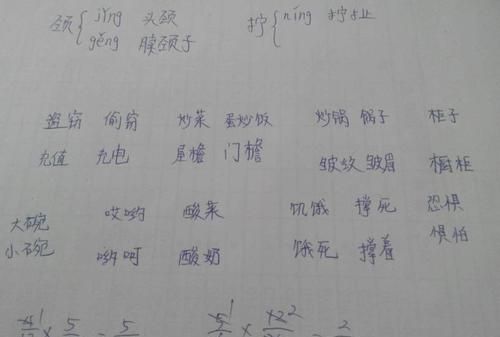 颈{jǐng 头颈 拧{níng
gěng 脖颈子
盗窃 偷窃 炒菜 蛋炒饭 炒锅 锅子 柜子
充值 充电 屋檐 门檐 皱纹 皱眉 橱柜
大碗 哎哟 酸菜 饥饿 撑死 恐惧
小碗 哟呵 酸奶 饿死 撑着 惧怕
× 5 = 5 × = 2